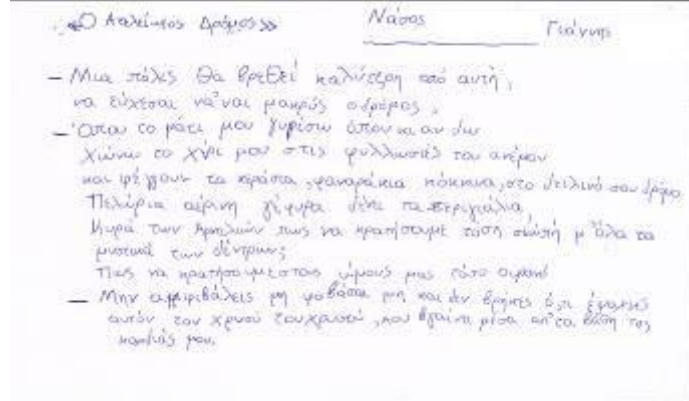 «Ο Ατελείωτος Δρόμος»
Νάσος
Γιάννης
– Μια πόλις θα βρεθεί καλύτερη από αυτή,
να εύχεσαι νά'ναι μακρύς ο δρόμος,
– Όπου το μάτι μου γυρίσω όπου κι αν δω
Χώνω το χέρι μου στις φυλλωσιές του ανέμου
και φέγγουν τα κεράσια, φαναράκια κόκκινα, στο δειλινό σου δρόμο
Πελώρια αέρινη γέφυρα δένει τα περιγιάλια,
Κυρά των Αμπελιών πως να κρατήσουμε τόση σιωπή μ' όλα τα
μυστικά των δέντρων;
Πως να κρατήσουμε στους ώμους μας τόσο ουρανό
– Μην αμφιβάλεις μη φοβάσαι μη και δεν βρήκες ό,τι έψαχνες
αυτόν τον χρυσό του χρυσού, που βγαίνει μέσα απ' τα βάθη της
καρδιάς μου.